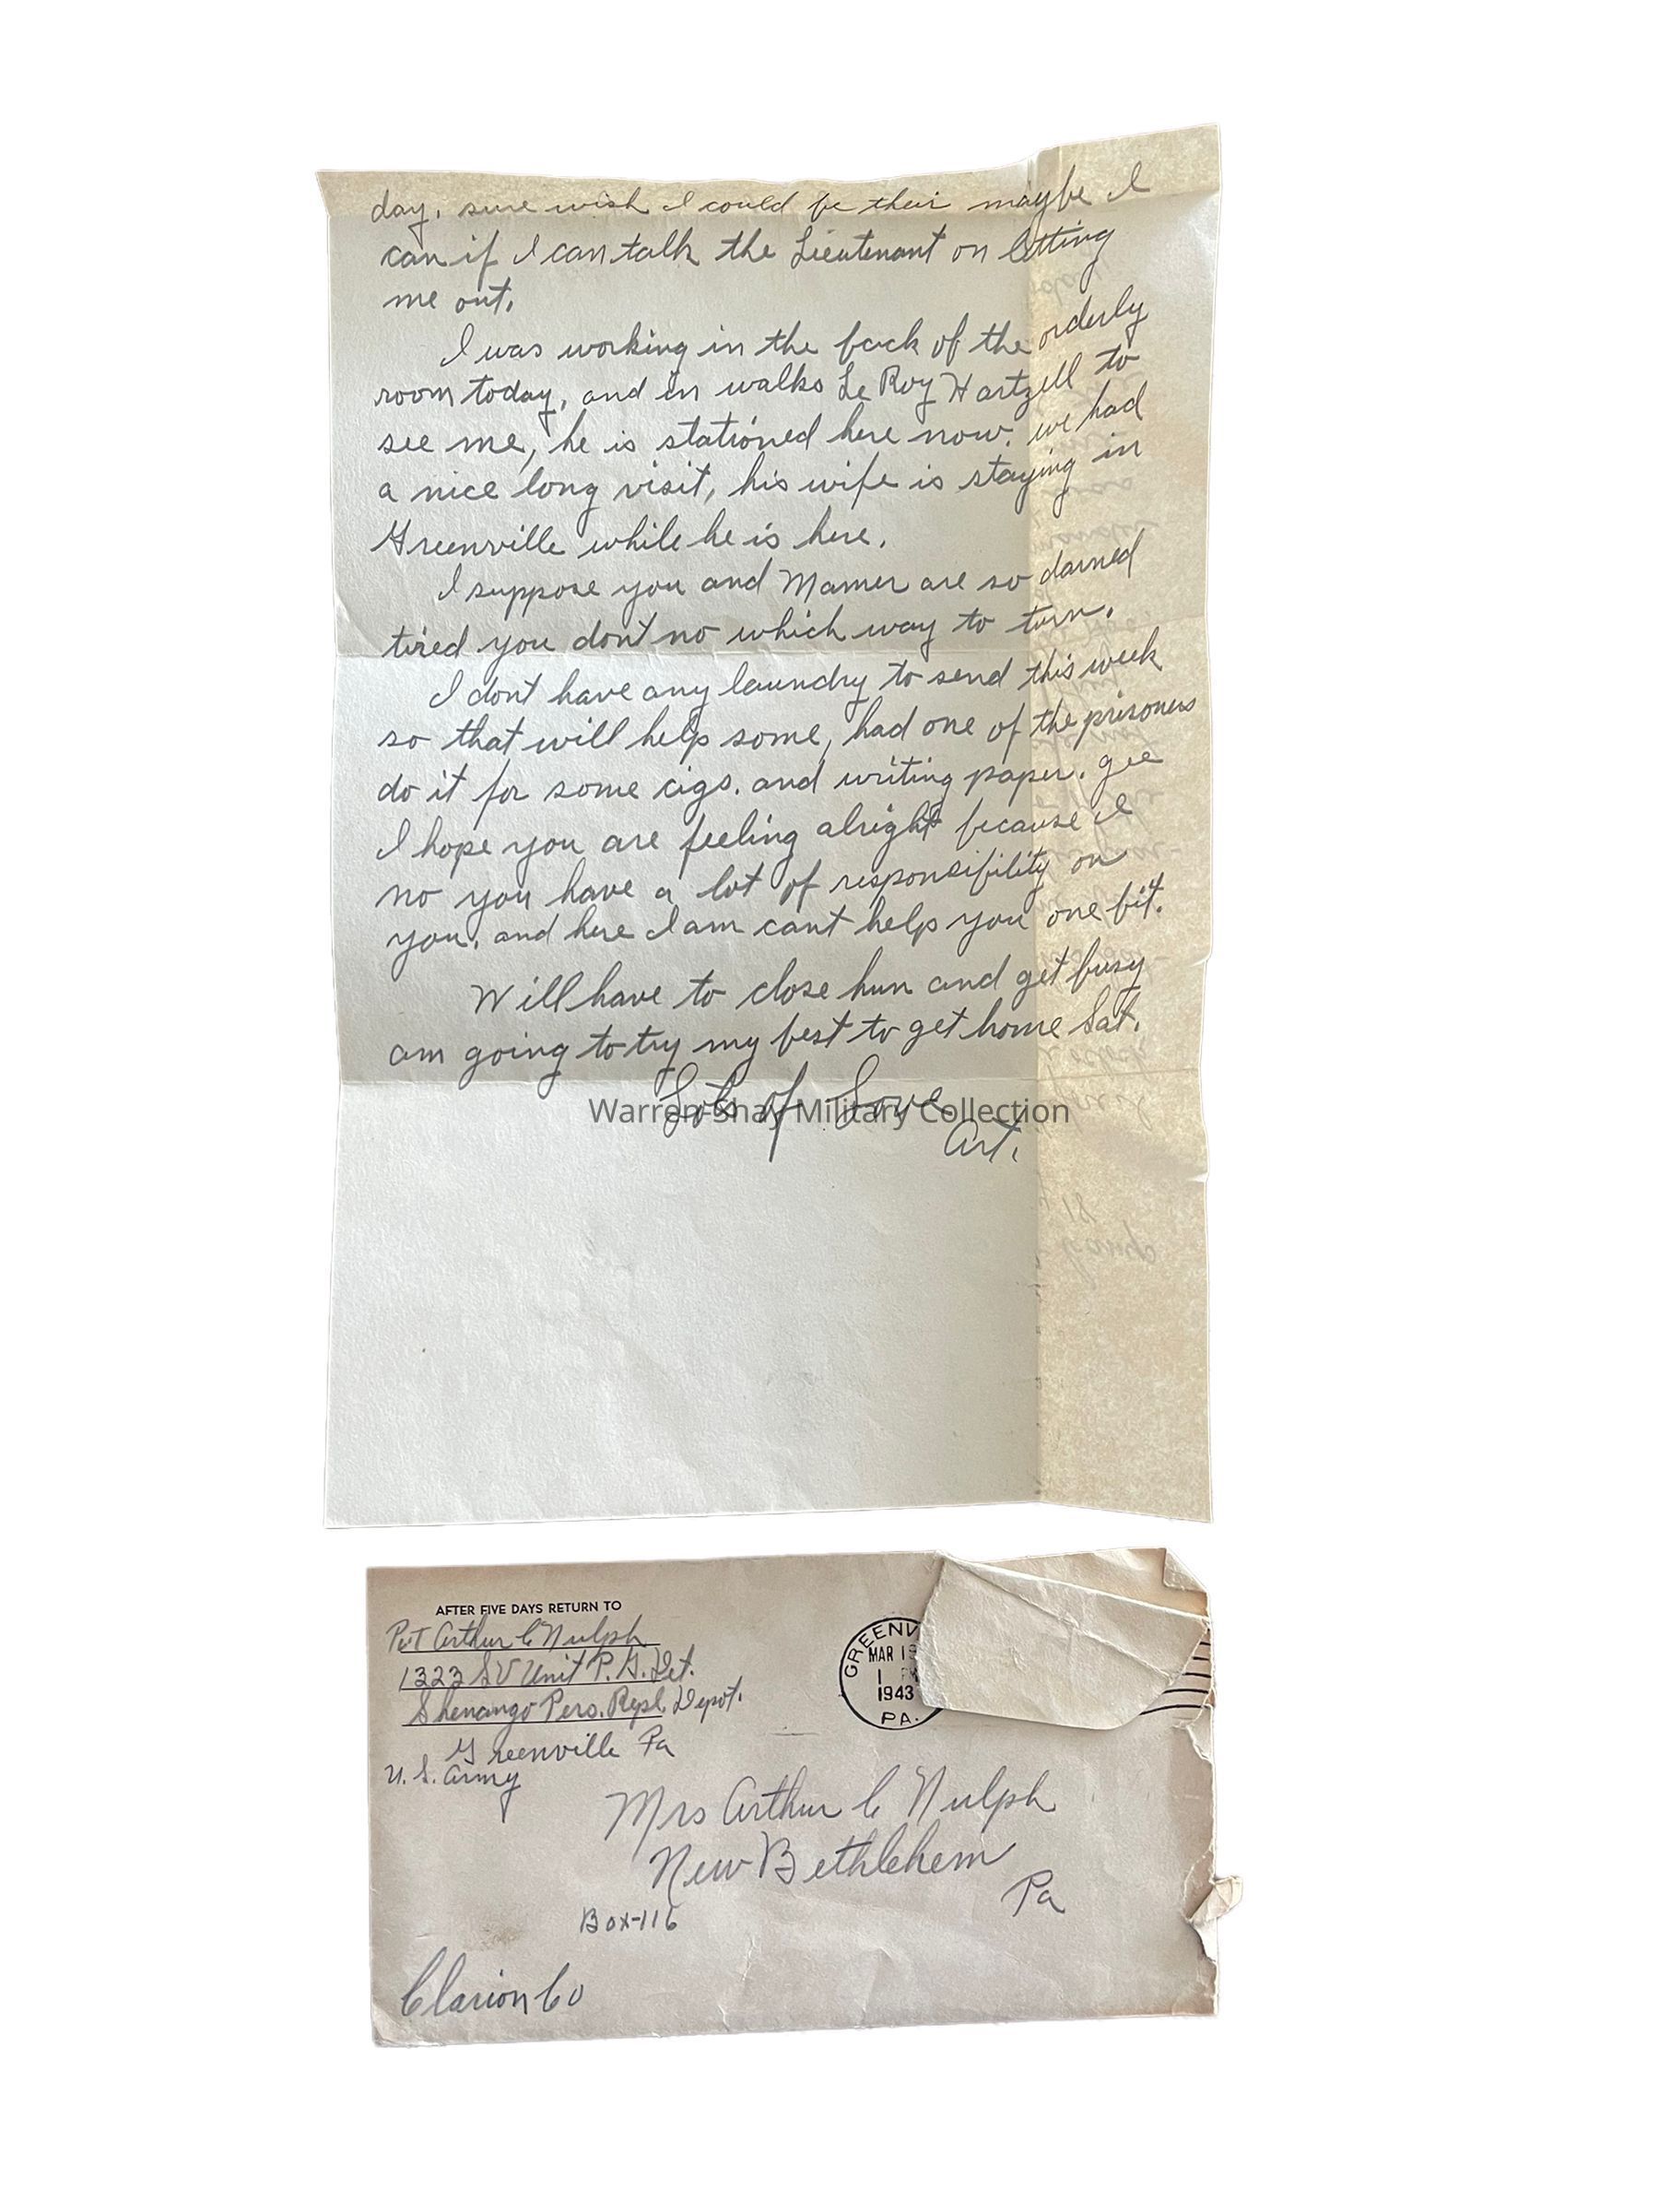 day. sure wish I could be their maybe I
can if I can talk the Lieutenant on letting
me out.
I was working in the back of the orderly
room today, and in walks Le Roy Hartzell to
see me, he is stationed here now. we had
a nice long visit, his wife is staying in
Greenville while he is here.
I suppose you and Mamer are so darned
tired you don't no which way to turn.
I don't have any laundry to send this week
so that will help some, had one of the prisoners
do it for some cigs. and writing paper. gee
I hope you are feeling alright because I
no you have a lot of responsibility on
you, and here I am cant help you one bit.
Will have to close hun and get busy
am going to try my best to get home Sat.
Lots of Love
Art.
Warren Shay Military Collection
AFTER FIVE DAYS RETURN TO
Pvt Arthur C Nulph
1323 SV Unit P. G. Det.
Shenango Pers. Repl. Depot.
Greenville Pa
U. S. Army
GREENV
MAR 1
1 PM
1943
PA.
Mrs Arthur C Nulph
New Bethlehem
Pa
Box-116
Clarion Co